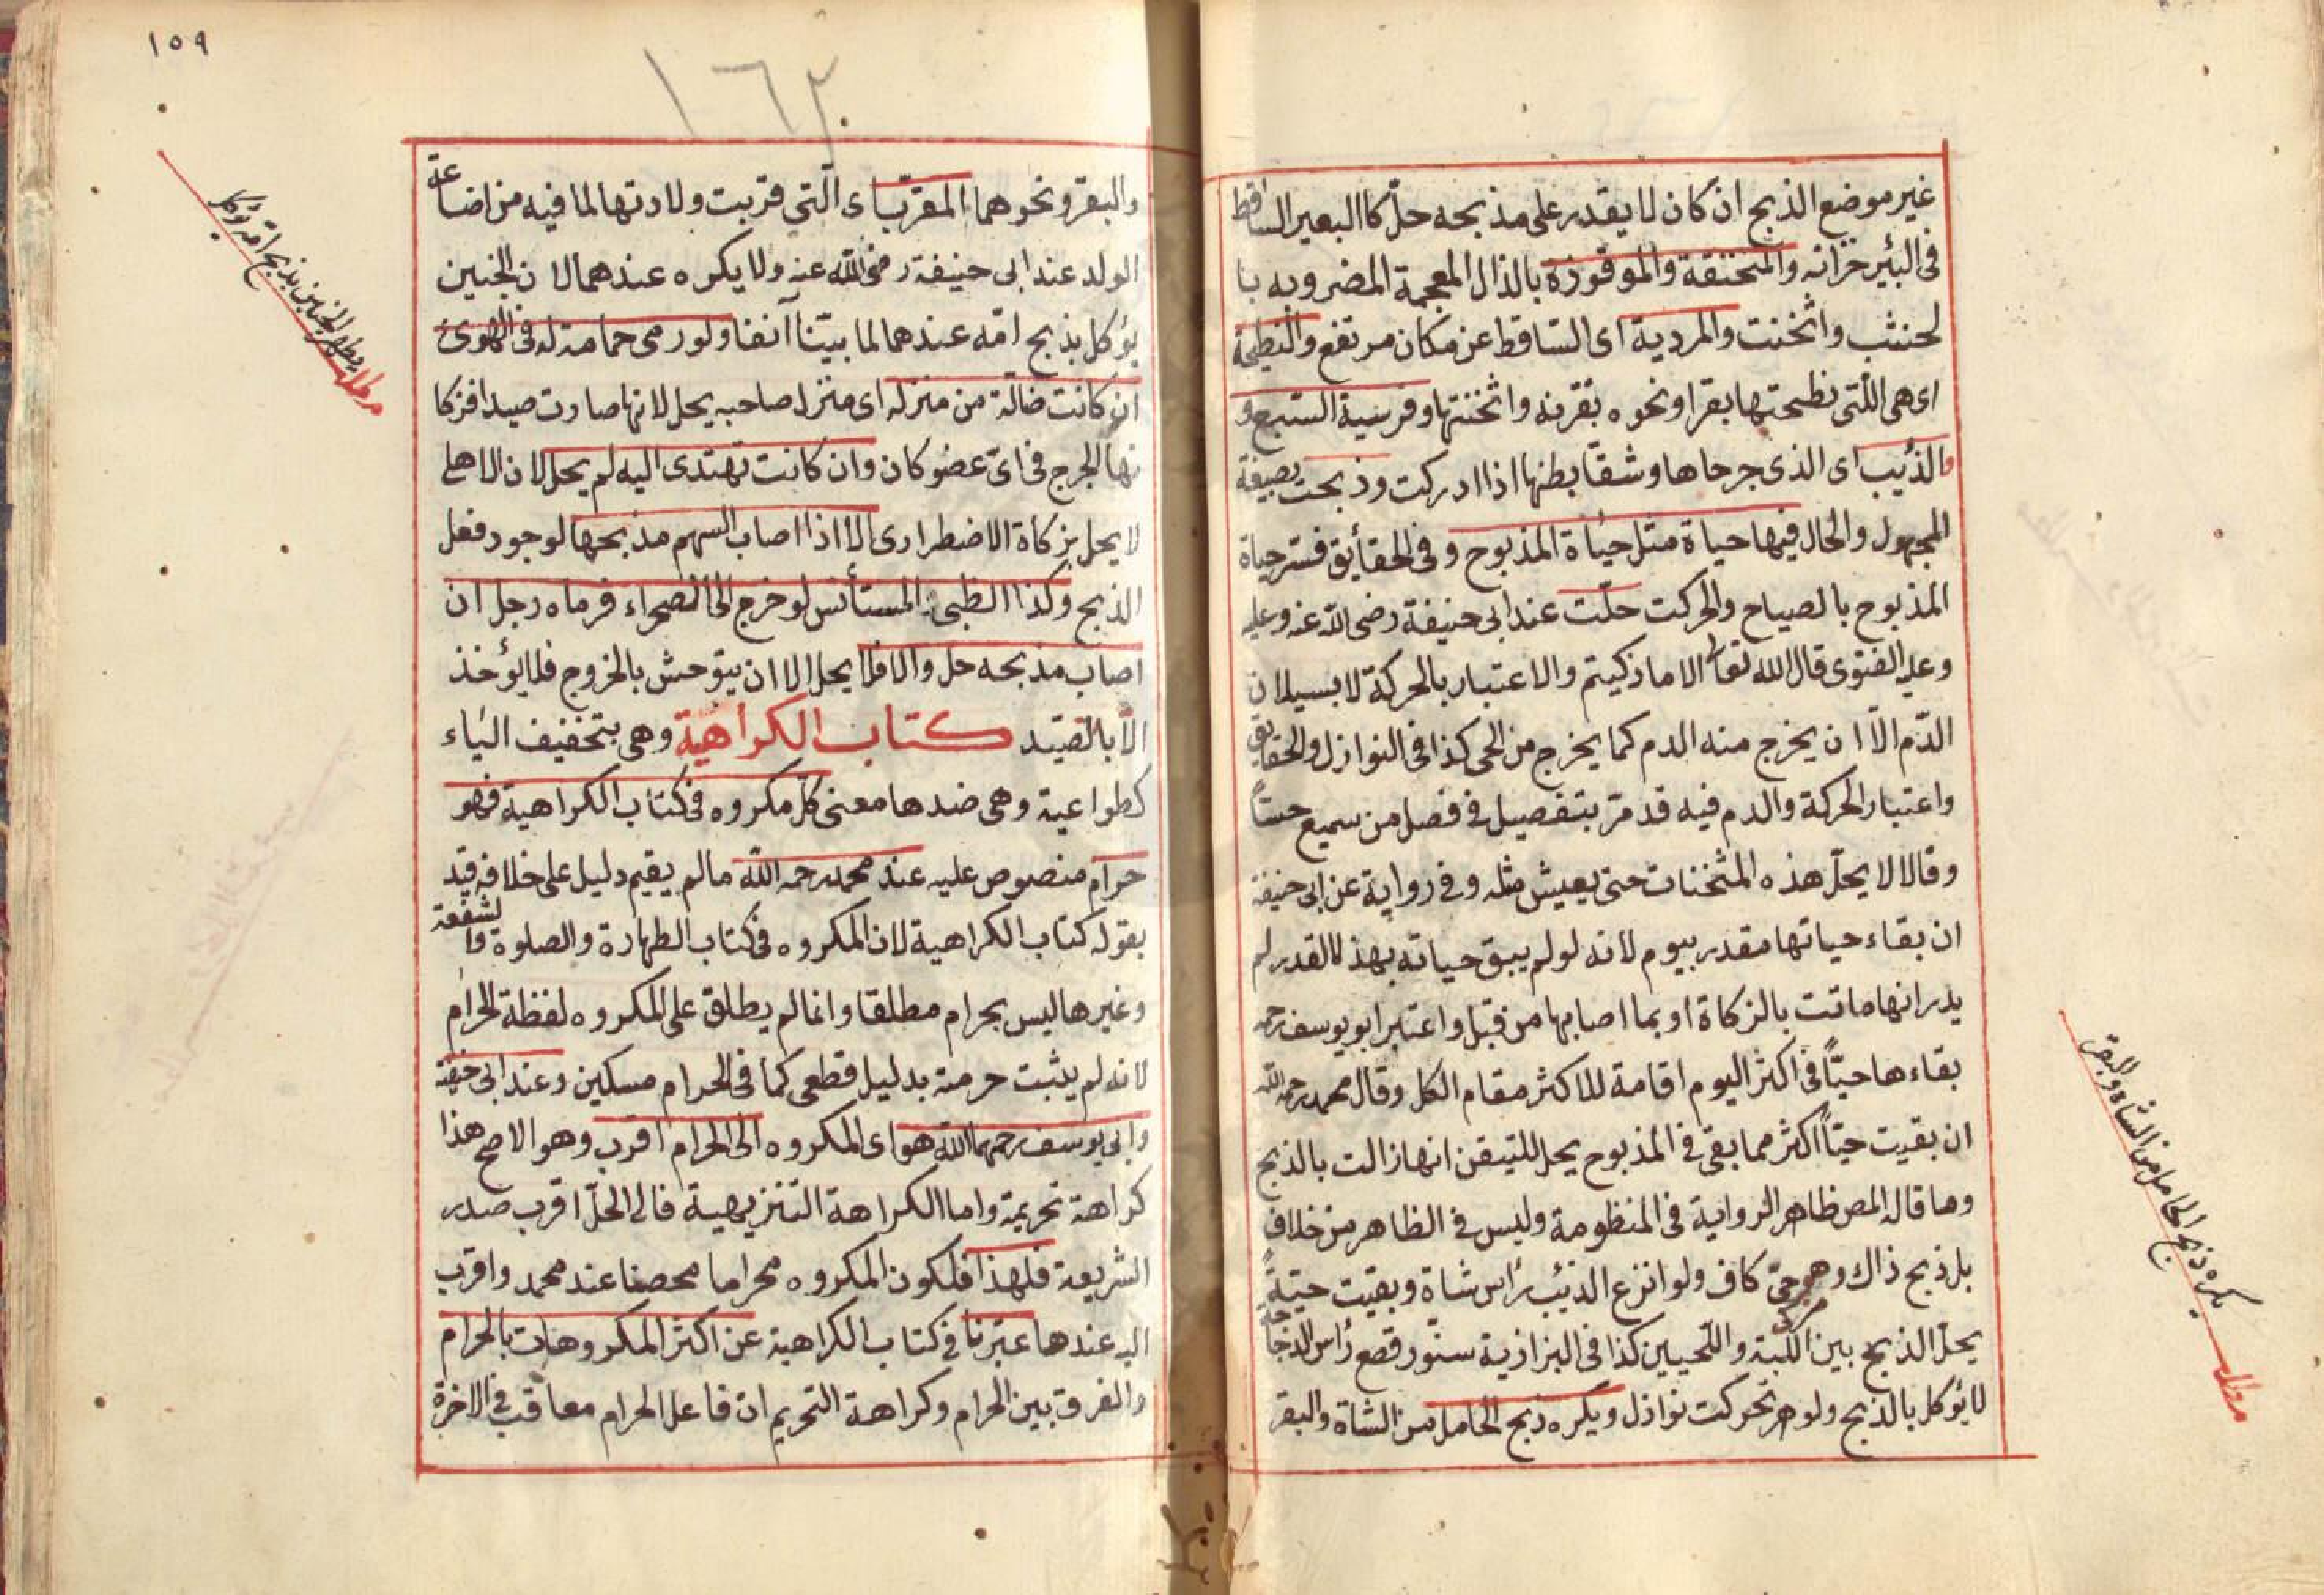 غير موضع الذبح ان كان لا يقدر على مذبحه حلّ كا البعير الساقط
فى البئر خزانه والمنخنقة والموقوزة بالذال المعجمة المضروبه با
لحنشب واثخنت والمردية اى الساقط عن مكان مرتفع والنطيحة
اى هى اللّتى نطحتها بقرا ونحوه بقرنه واثخنتها وفرسية السّبع و
والذئيب اى الذى جرحاها وشقّا بطنها اذا ادركت وذبحت بصيغة
المجهول والحال فيها حياة مثل حياة المذبوح وفى الحقأيق فسّر حياة
المذبوح بالصياح والحركت حلّت عند ابى حنيفة رضى اللّه عنه وعليه
وعليه الفتوى قال الله تعالى الا ما ذكيتم والاعتبار بالحركة لا بسيلان
الدّم الّا ان يخرج منه الدم كما يخرج من الحى كذا فى النوازل والحقايق
واعتبار الحركة والدم فيه قد مرّ بتفصيل فى فصل من سميع حسّاً
وقالا لا يحلّ هذه المثخنات حتى يعيش مثله وفى رواية عن ابى حنيفة
ان بقاء حياتها مقدر بيوم لانه لو لم يبق حياته بهذ لالقدر لم
يدر انها ماتت بالزكاة او بما اصابها من قبل واعتبر ابو يوسف رحمه
بقاءها حيّاً فى اكثر اليوم اقامة للاكثر مقام الكل وقال محمد رحمه اللّه
ان بقيت حيّاً اكثر مما بقى فى المذبوح يحل للتيقن انها زالت بالذبح
وما قاله المص ظاهر الرواية فى المنظومة وليس فى الظاهر من خلاف
بل ذبح ذاك وهو حىّ كاف ولو انزع الذئب رأس شاة وبقيت حيّةً
يحلّ الذبح بين اللّبة واللّحيين كذا فى البزازية سنّور قطع رأس الدجاجة
لا يؤكل بالذبح ولو هر تحركت نوازل ويكره ذبح الحامل من الشاة والبقر
يكره ذبح الحامل من الشاة والبقر
مطلب
١٥٩
١٦٢
والبقر ونحوهما المقرّبا اى الّتى قربت ولادتها لما فيه من اضاعة
الولد عند ابى حنيفة رضى اللّه عنه ولا يكره عندهما لان الجنين
يؤكل بذبح امّه عندهما لما بيّنا آنفا ولو رمى حمامة له فى الهوى
ان كانت ضالّة من منزله اى منزل صاحبه يحل لانها صارت صيدا فزكا
تها الجرح فى اىّ عضو كان وان كانت تهتدى اليه لم يحل لان الاهلى
لا يحل بزكاة الاضطرارى الا اذا اصاب السهم مذبحها لوجود فعل
الذبح وكذا الظبى المستأنس لو خرج الى الصحراء فرماه رجل ان
اصاب مذبحه حل والا فلا يحل الا ان يتوحش بالخروج فلا يؤخذ
الّا بالصّيد كتاب الكراهية وهى بتخفيف الياء
كطواعية وهى ضدها معنى كل مكروه فى كتاب الكراهية فهو
حرام منصوص عليه عند محمد رحمه اللّه ما لم يقيم دليل على خلافه قيد
بقوله كتاب الكراهية لان المكروه فى كتاب الطهارة والصلوة والشفعة
وغيرها ليس بحرام مطلقا وانما لم يطلق على المكروه لفظة الحرام
لانه لم يثبت حرمته بدليل قطعى كما فى الحرام مسكين وعند ابى حنيفة
وابى يوسف رحمهما اللّه هو اى المكروه الى الحرام اقرب وهو الاصح هذا
كراهة تحريمة واما الكراهة التنزيهية فالى الحلّ اقرب صدر
الشريعة فلهذا فلكون المكروه محراما محصنا عند محمد واقرب
اليه عندها عبّرنا فى كتاب الكراهية عن اكثر المكروهات بالحرام
والفرق بين الحرام وكراهة التحريم ان فاعل الحرام معاقب فى الاخرة
الجنين بذبح امّه يؤكل
مطلب